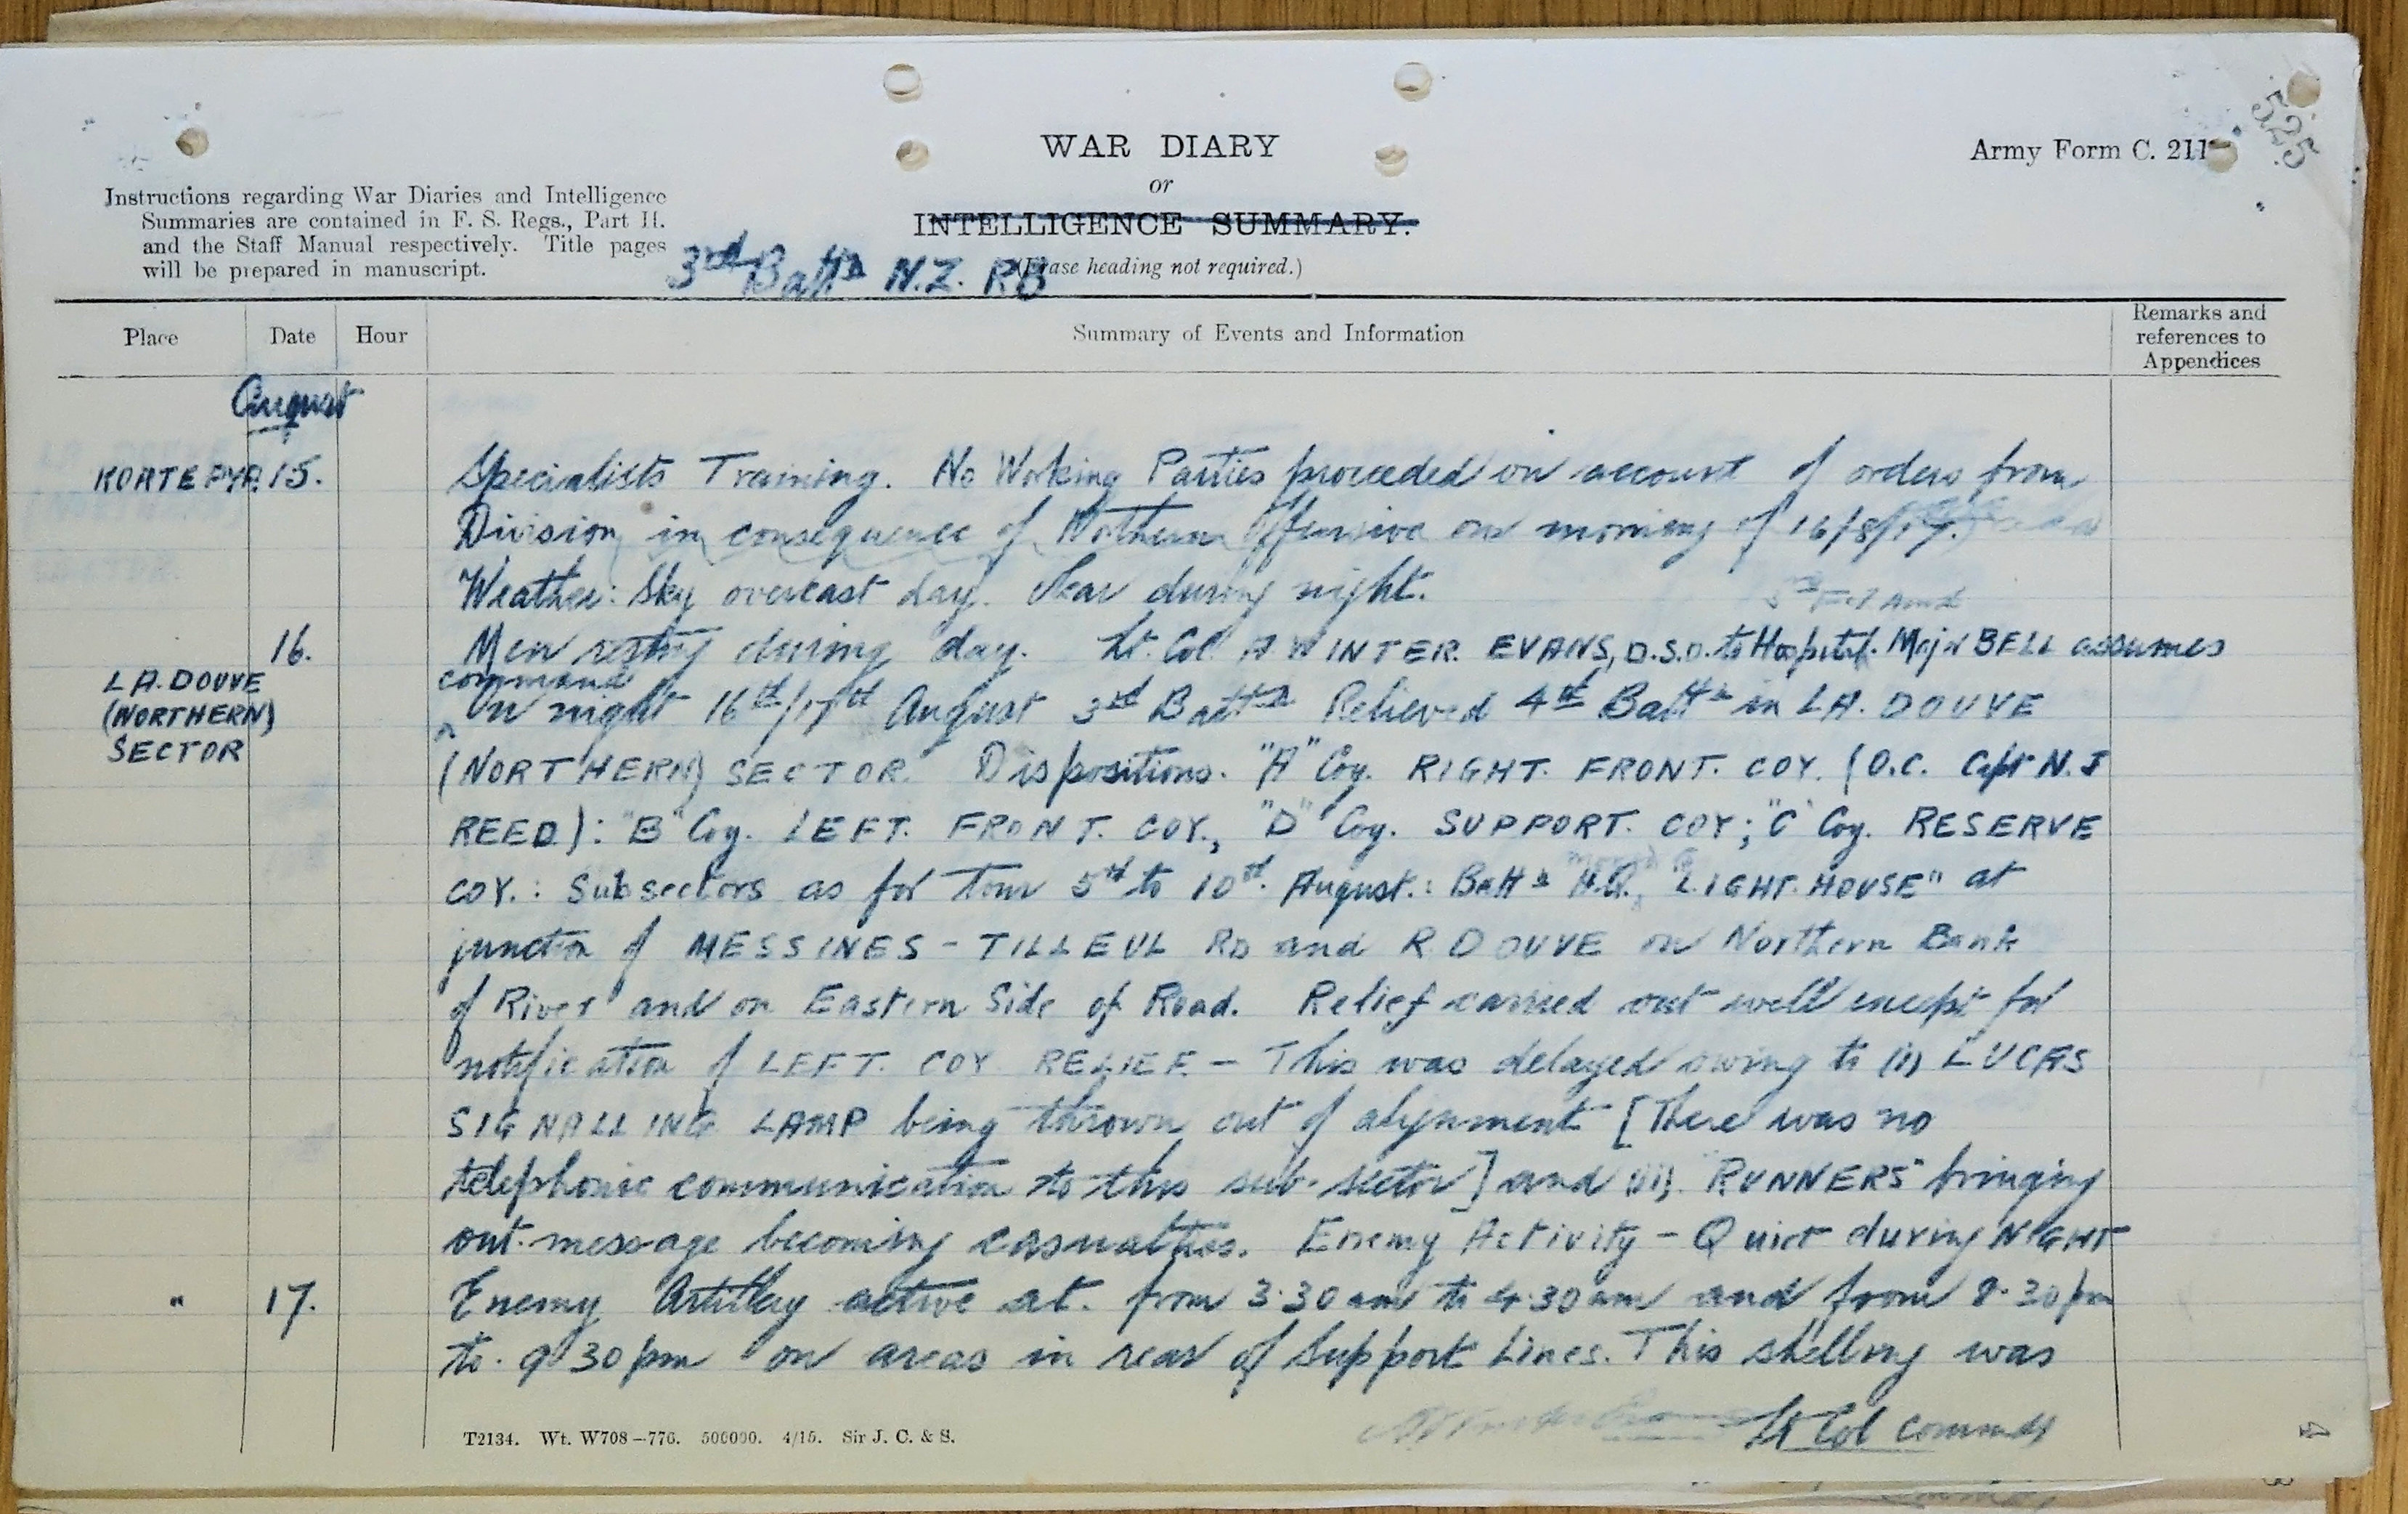 525
WAR DIARY
or
INTELLIGENCE SUMMARY.
(Erase heading not required.)
Army Form C. 211
Instructions regarding War Diaries and Intelligence
Summaries are contained in F. S. Regs., Part II.
and the Staff Manual respectively. Title pages
will be prepared in manuscript.
3rd Battn N.Z. RB
Place Date Hour Summary of Events and Information Remarks and
references to
Appendices
August
KORTEPYP. 15. Specialists Training. No Working Parties proceeded on account of orders from
Division in consequence of Northern Offensive on morning of 16/8/17.
Weather: Sky overcast day. Clear during night.
16. Men resting during day. Lt. Col. A. WINTER. EVANS, D.S.O. to Hospital. Major BELL assumes
command
LA. DOUVE
(NORTHERN)
SECTOR
On night 16th/17th August 3rd Battn Relieved 4th Battn in LA. DOUVE
(NORTHERN) SECTOR. Dispositions. "A" Coy. RIGHT. FRONT. COY. (O.C. Capt N. J
REED): "B" Coy. LEFT. FRONT. COY., "D" Coy. SUPPORT. COY; "C" Coy. RESERVE
COY.: Subsectors as for Tour 5th to 10th. August.: Battn H.Q. "LIGHT. HOUSE" at
junction of MESSINES - TILLEUL RD and R DOUVE on Northern Bank
of River and on Eastern Side of Road. Relief carried out well except for
notification of LEFT. COY. RELIEF. - This was delayed owing to (i) LUCAS
SIGNALLING LAMP being thrown out of alignment [There was no
telephonic communication to this sub-sector] and (ii). "RUNNERS" bringing
out message becoming casualties. Enemy Activity - Quiet during NIGHT
" 17. Enemy Artillery active at. from 3.30 am to 4.30 am and from 8.30 pm
to. 9.30 pm on areas in rear of Support Lines. This shelling was
Lt Col Commdg
T2134. Wt. W708-776. 500000. 4/15. Sir J. C. & S.